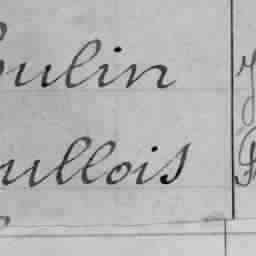 oulin
ullois